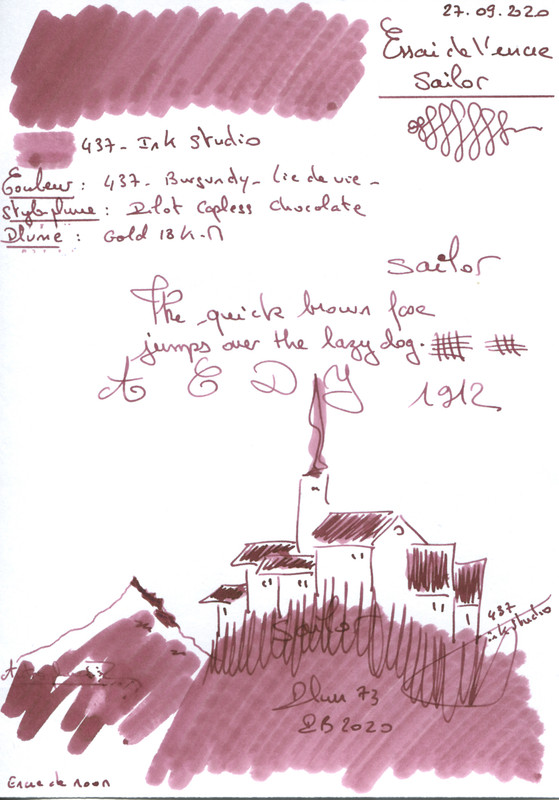 27.09.2020
Essai de l'encre
Sailor
437- Ink Studio
Couleur : 437- Burgundy- Lie de vie -
Stylo plume : Pilot Capless Chocolate
Plume : Gold 18 K-M
Sailor
The quick brown foxe
jumps over the lazy dog.
A E D Y 1912
Sailor
437
ink studio
73
2020
Encre de noon